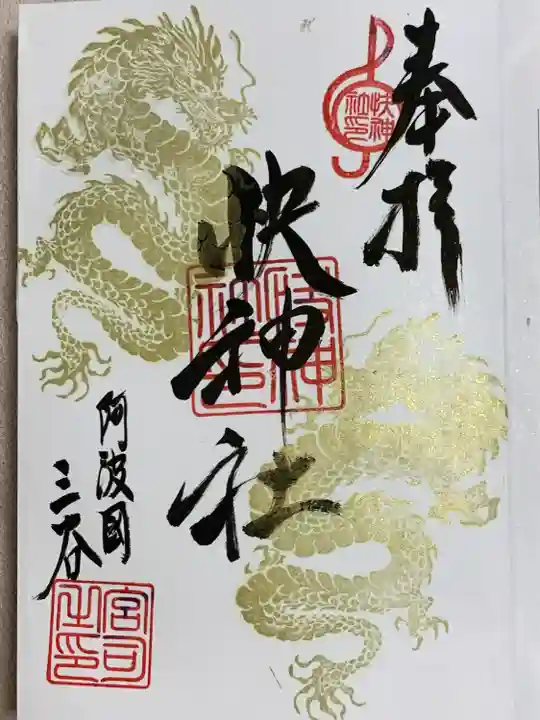 奉拝
快神社
快神社印
阿波國
三谷
宮司之印